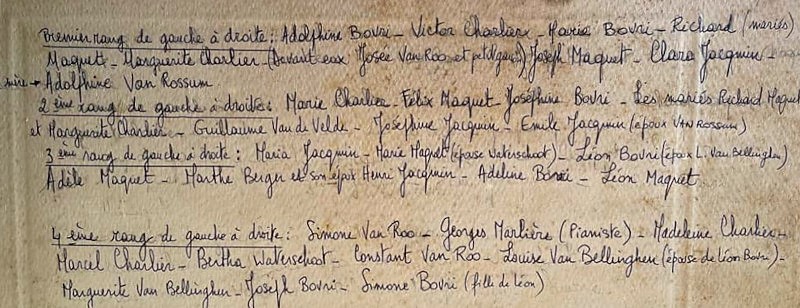 Premier rang de gauche à droite: Adolphine Bovri - Victor Charlier - Maria Bovri - Richard (mariés)
Maquet - Marguerite Charlier - (Devant eux Josée Van Roo et petit garçon) Joseph Maquet - Clara Jacqumin
mère → Adolphine Van Rossum
2ème rang de gauche à droite: Marie Charlier - Félix Maquet - Joséphine Bovri - Les mariés Richard Maquet
et Marguerite Charlier - Guillaume Van de Velde - Joséphine Jacqmin - Emile Jacqmin (époux VAN ROSSUM)
3ème rang de gauche à droite: Maria Jacqmin - Marie Maquet (épouse Waterschoot) - Léon Bovri (époux L. Van Bellinghen)
Adèle Maquet - Marthe Berger et son époux Henri Jacqmin - Adeline Bovri - Léon Maquet
4ème rang de gauche à droite: Simone Van Roo - Georges Marlière (Pianiste) - Madeleine Charlier -
Marcel Charlier - Bertha Waterschoot - Constant Van Roo - Louise Van Bellinghen (épouse de Léon Bovri) -
Marguerite Van Bellinghen - Joseph Bovri - Simone Bovri (fille de Léon)